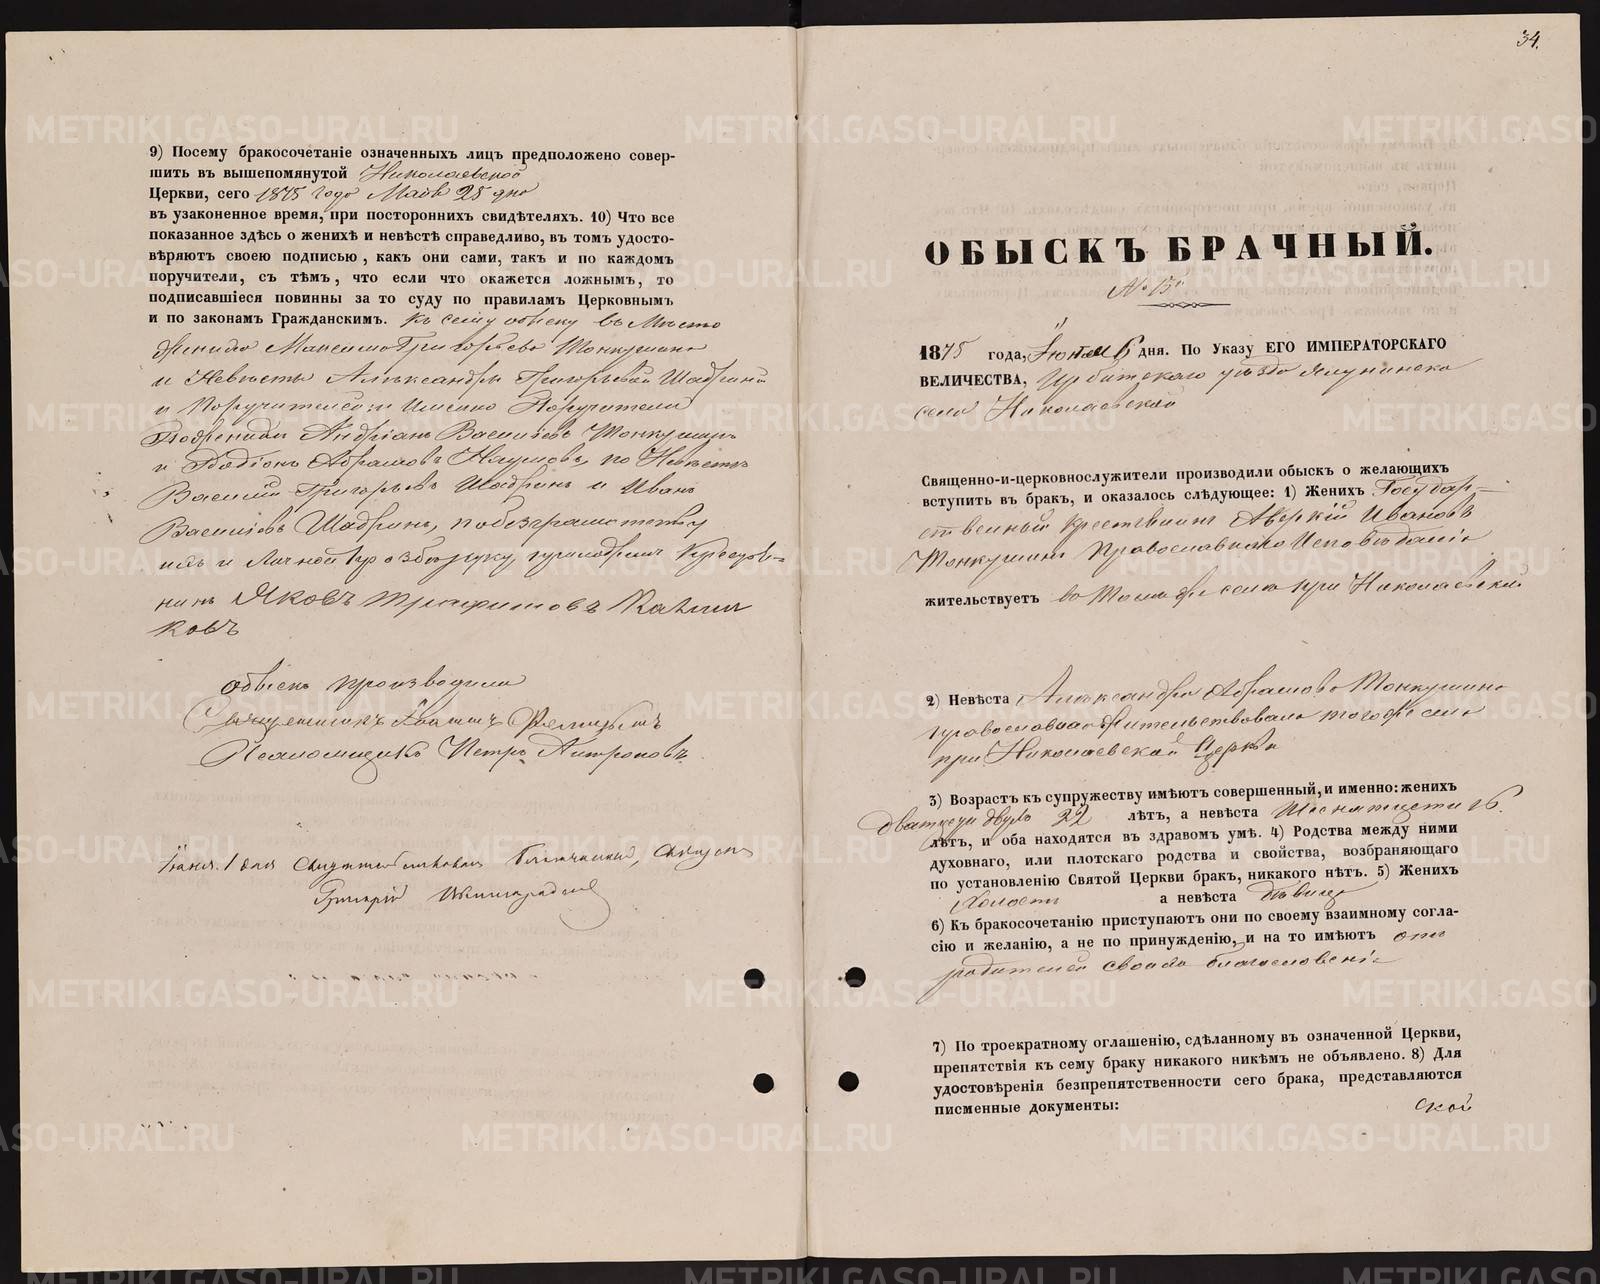 9) Посему бракосочетаніе означенныхъ лицъ предположено совер-
шить въ вышепомянутой Николаевской
Церкви, сего 1875 года Маія 25 дня
въ узаконенное время, при постороннихъ свидѣтеляхъ. 10) Что все
показанное здѣсь о женихѣ и невѣстѣ справедливо, въ томъ удосто-
вѣряютъ своею подписью, какъ они сами, такъ и по каждомъ
поручители, съ тѣмъ, что если что окажется ложнымъ, то
подписавшіеся повинны за то суду по правиламъ Церковнымъ
и по законамъ Гражданскимъ. Къ сему обыску вместо
жениха Максима Григорьева Тонкушина
и Невесты Александры Григорьевой Шадриной
и Поручителей Имянно Поручители
По жениху Андріанъ Василіевъ Тонкушинъ
и Родіонъ Абрамовъ Наумовъ, по Невесте
Василій Григорьевъ Шадринъ и Иванъ
Василіевъ Шадринъ, по безграмотству
ихъ и личной прозбе руку приложилъ
Яковъ Трифимовъ Калши
ковъ
Обыскъ производили
Священникъ
Псаломщикъ Петръ Антроповъ
1 дня
Григорій
34.
ОБЫСКЪ БРАЧНЫЙ.
№ 15й
1875 года, Іюня 6 дня. По Указу ЕГО ИМПЕРАТОРСКАГО
ВЕЛИЧЕСТВА, Ирбитскаго уѣзда Ялунинска
села Николаевской
Священно-и-церковнослужители производили обыскъ о желающихъ
вступить въ бракъ, и оказалось слѣдующее: 1) Женихъ Государ-
ственный крестьянинъ Аверкій Ивановъ
Тонкушинъ Православнаго Исповѣданія
жительствуетъ въ томъ же селе при Николаевской
2) Невѣста Александра Абрамова Тонкушина
православная жительствовала того же села
при Николаевской Церкви
3) Возрастъ къ супружеству имѣютъ совершенный, и именно: женихъ
двадцети двухъ 22 лѣтъ, а невѣста Шеснатцети 16.
лѣтъ, и оба находятся въ здравомъ умѣ. 4) Родства между ними
духовнаго, или плотскаго родства и свойства, возбраняющаго
по установленію Святой Церкви бракъ, никакого нѣтъ. 5) Женихъ
Холостъ а невѣста Дѣвица
6) Къ бракосочетанію приступаютъ они по своему взаимному согла-
сію и желанію, а не по принужденію, и на то имѣютъ отъ
родителей своихъ благословеніе
7) По троекратному оглашенію, сдѣланному въ означенной Церкви,
препятствія къ сему браку никакого никѣмъ не объявлено. 8) Для
удостовѣренія безпрепятственности сего брака, представляются
писменные документы:
ской
METRIKI.GASO-URAL.RU